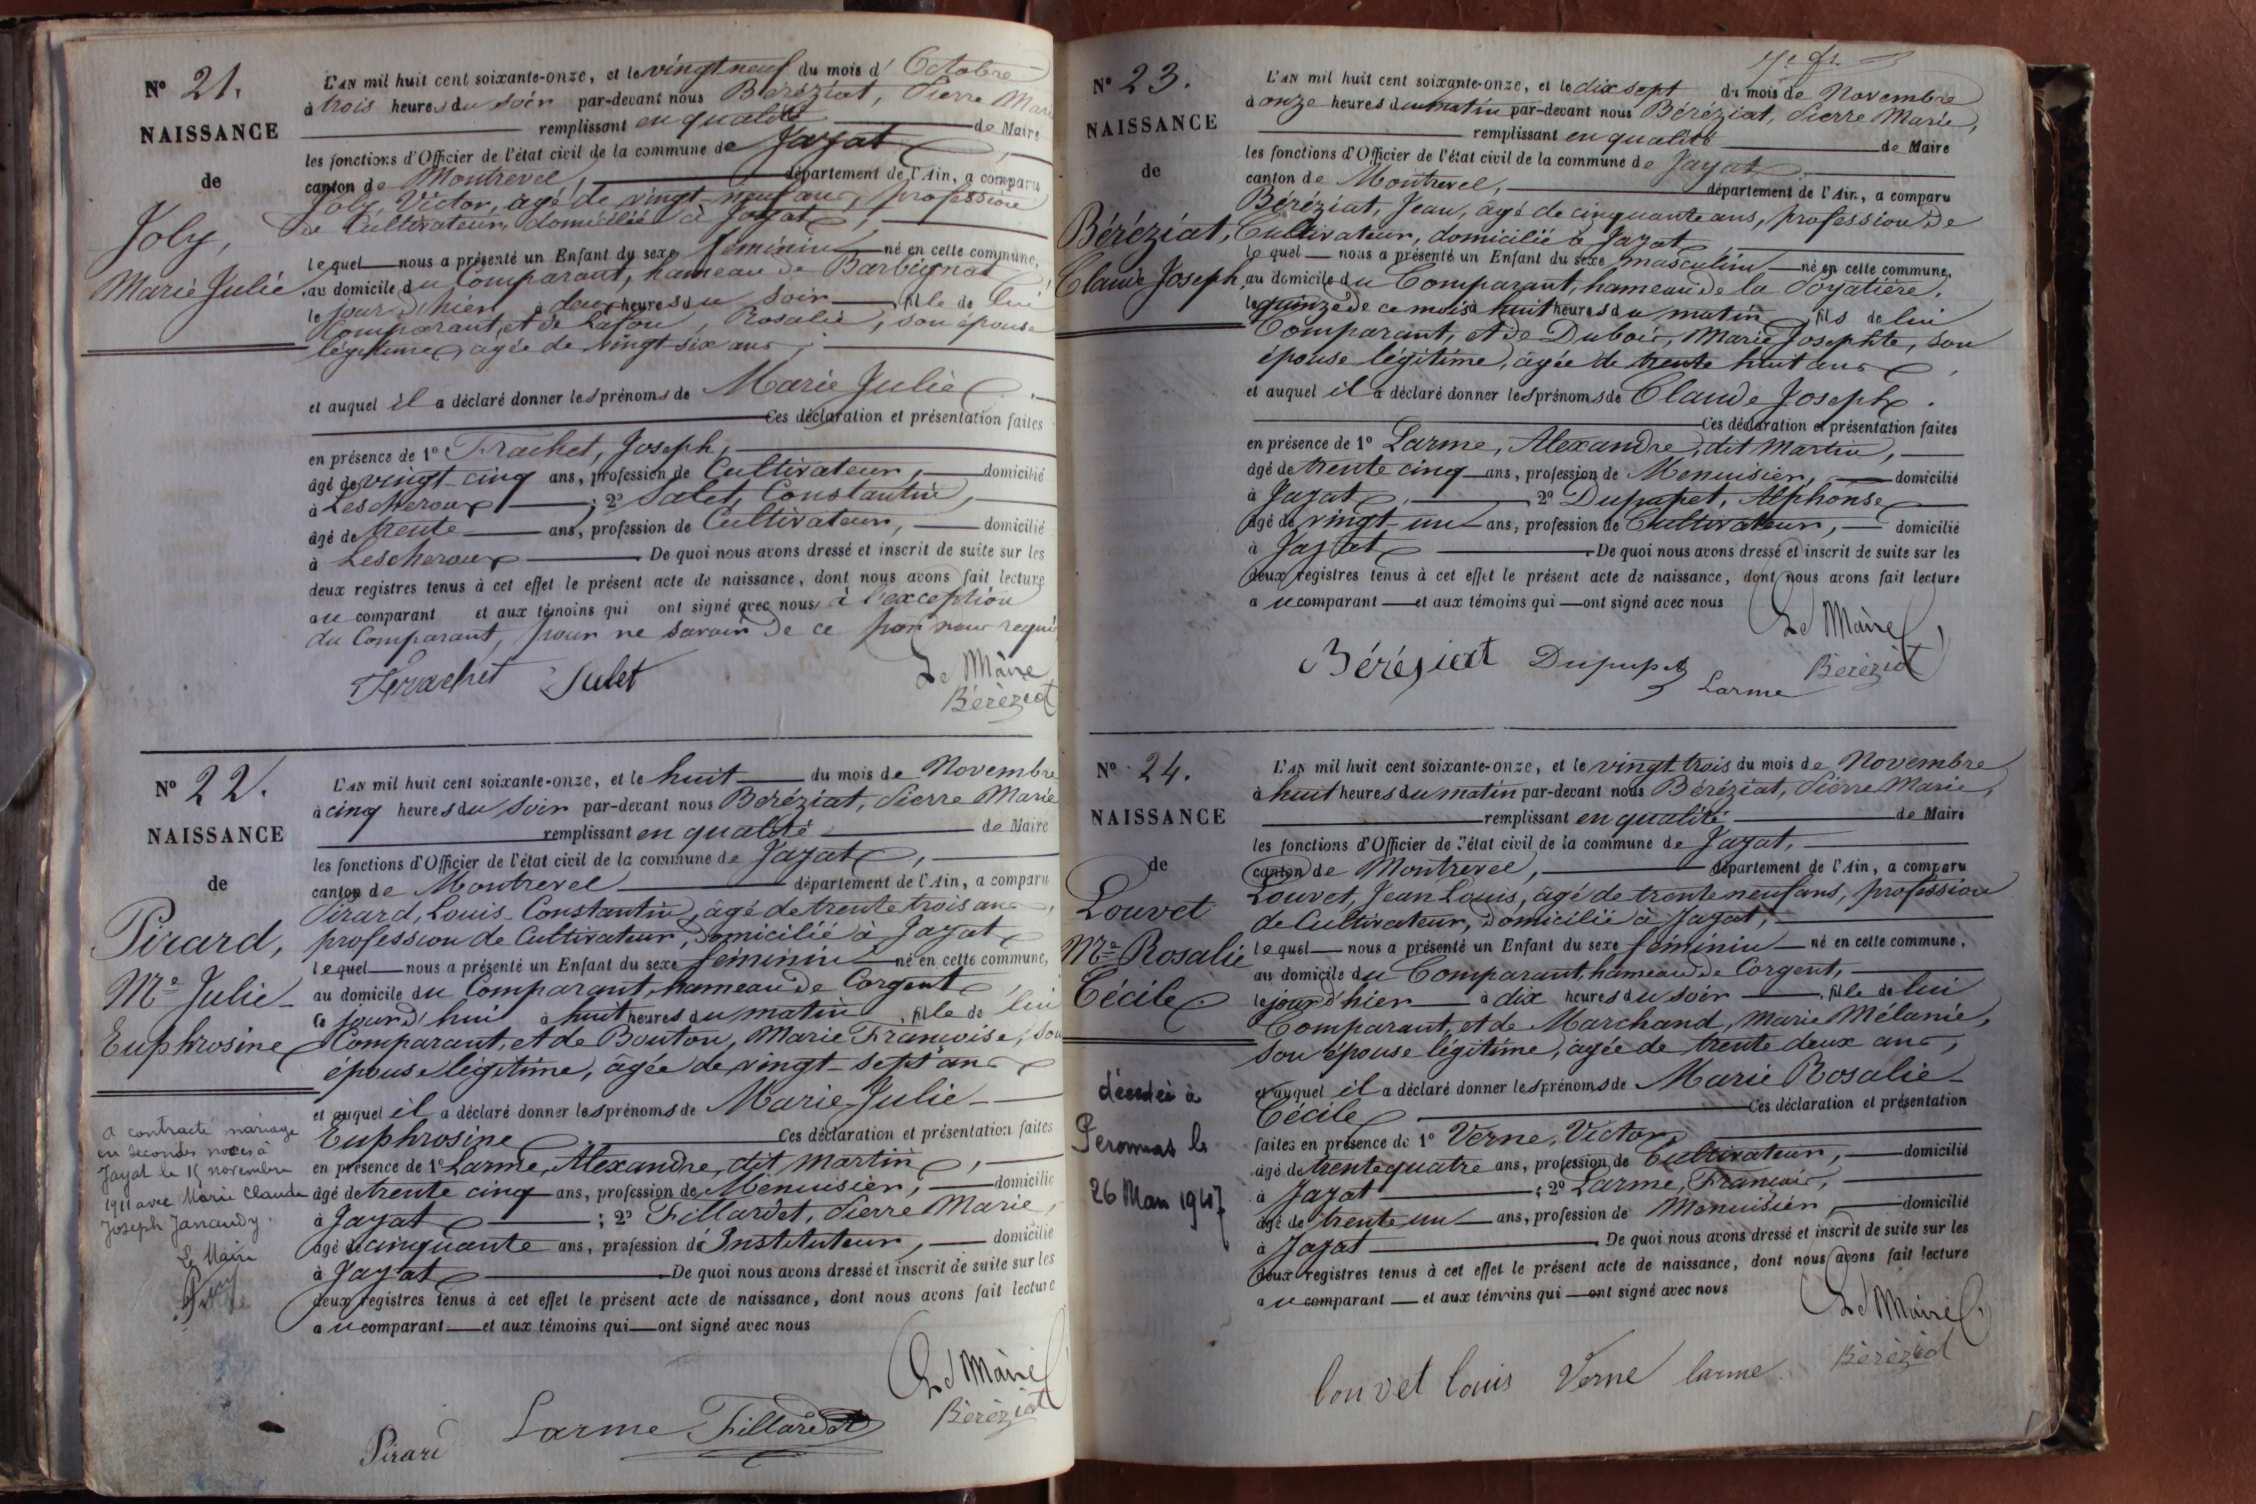 N° 21.
NAISSANCE
de
Joly,
Marie Julie
L'AN mil huit cent soixante-onze, et le vingt neuf du mois d' Octobre
à trois heures du soir par-devant nous Béréziat, Pierre Marie
remplissant en qualité de Maire
les fonctions d'Officier de l'état civil de la commune de Jayat,
canton de Montrevel, département de l'Ain, a comparu
Joly, Victor, âgé de vingt-neuf ans, profession
de Cultivateur, domicilié à Jayat,
lequel nous a présenté un Enfant du sexe féminin né en cette commune,
au domicile du Comparant, hameau de Barbignat
le jour d'hier à deux heures du soir, fille de lui
Comparant, et de Lafon, Rosalie, son épouse
légitime, âgée de vingt-six ans,
et auquel il a déclaré donner les prénoms de Marie Julie.
Ces déclaration et présentation faites
en présence de 1° Frachet, Joseph,
âgé de vingt-cinq ans, profession de Cultivateur, domicilié
à Lescheroux ; 2° Salet, Constantin,
âgé de trente ans, profession de Cultivateur, domicilié
à Lescheroux De quoi nous avons dressé et inscrit de suite sur les
deux registres tenus à cet effet le présent acte de naissance, dont nous avons fait lecture
au comparant et aux témoins qui ont signé avec nous à l'exception
du Comparant, pour ne savoir de ce par nous requis
Frachet Salet Le Maire
Béréziat
N° 22.
NAISSANCE
de
Pirard,
Mie Julie
Euphrosine
a contracté mariage
en secondes noces à
Jayat le novembre
1911 avec Marie Claude
Joseph Janaudy.
Le Maire
L'AN mil huit cent soixante-onze, et le huit du mois de Novembre
à cinq heures du soir par-devant nous Béréziat, Pierre Marie
remplissant en qualité de Maire
les fonctions d'Officier de l'état civil de la commune de Jayat,
canton de Montrevel département de l'Ain, a comparu
Pirard, Louis-Constantin, âgé de trente trois ans,
profession de Cultivateur, domicilié à Jayat
lequel nous a présenté un Enfant du sexe féminin né en cette commune,
au domicile du Comparant, hameau de Corgent,
le jour d'hui à huit heures du matin, fille de lui
Comparant, et de Bouton, Marie Françoise, son
épouse légitime, âgée de vingt-sept ans
et auquel il a déclaré donner les prénoms de Marie-Julie-
Euphrosine Ces déclaration et présentation faites
en présence de 1° Larme, Alexandre, dit Martin,
âgé de trente cinq ans, profession de Menuisier, domicilié
à Jayat ; 2° Fillardet, Pierre Marie,
âgé de cinquante ans, profession de Instituteur, domicilié
à Jayat De quoi nous avons dressé et inscrit de suite sur les
deux registres tenus à cet effet le présent acte de naissance, dont nous avons fait lecture
au comparant et aux témoins qui ont signé avec nous
Le Maire
Pirard Larme Fillardet Béréziat
N° 23.
NAISSANCE
de
Béréziat,
Claude Joseph,
L'AN mil huit cent soixante-onze, et le dix sept du mois de Novembre
à onze heures du matin par-devant nous Béréziat, Pierre Marie,
remplissant en qualité de Maire
les fonctions d'Officier de l'état civil de la commune de Jayat
canton de Montrevel, département de l'Ain, a comparu
Béréziat, Jean, âgé de cinquante ans, profession de
Cultivateur, domicilié à Jayat,
lequel nous a présenté un Enfant du sexe masculin né en cette commune,
au domicile du Comparant, hameau de la
le quinze de ce mois à huit heures du matin, fils de lui
Comparant, et de Dubois, Marie Josephte, son
épouse légitime, âgée de trente huit ans
et auquel il a déclaré donner les prénoms de Claude Joseph.
Ces déclaration et présentation faites
en présence de 1° Larme, Alexandre, dit Martin,
âgé de trente cinq ans, profession de Menuisier, domicilié
à Jayat, 2° Dupupet, Alphonse
âgé de vingt-un ans, profession de Cultivateur, domicilié
à Jayat De quoi nous avons dressé et inscrit de suite sur les
deux registres tenus à cet effet le présent acte de naissance, dont nous avons fait lecture
au comparant et aux témoins qui ont signé avec nous
Le Maire
Béréziat Dupupet Larme Béréziat
N° 24.
NAISSANCE
de
Louvet
Mie Rosalie
Cécile
décédée à
Peronnas le
26 Mars 1947
L'AN mil huit cent soixante-onze, et le vingt-trois du mois de Novembre
à huit heures du matin par-devant nous Béréziat, Pierre Marie,
remplissant en qualité de Maire
les fonctions d'Officier de l'état civil de la commune de Jayat,
canton de Montrevel, département de l'Ain, a comparu
Louvet, Jean Louis, âgé de trente neuf ans, profession
de Cultivateur, domicilié à Jayat,
lequel nous a présenté un Enfant du sexe féminin né en cette commune,
au domicile du Comparant, hameau de Corgent,
le jour d'hier à dix heures du soir, fille de lui
Comparant, et de Marchand, Marie Mélanie,
son épouse légitime, âgée de trente deux ans,
et auquel il a déclaré donner les prénoms de Marie Rosalie-
Cécile Ces déclaration et présentation
faites en présence de 1° Verne, Victor,
âgé de trente quatre ans, profession de Cultivateur, domicilié
à Jayat ; 2° Larme, François,
âgé de trente un ans, profession de Menuisier, domicilié
à Jayat De quoi nous avons dressé et inscrit de suite sur les
deux registres tenus à cet effet le présent acte de naissance, dont nous avons fait lecture
au comparant et aux témoins qui ont signé avec nous
Le Maire
louvet louis Verne larme Béréziat